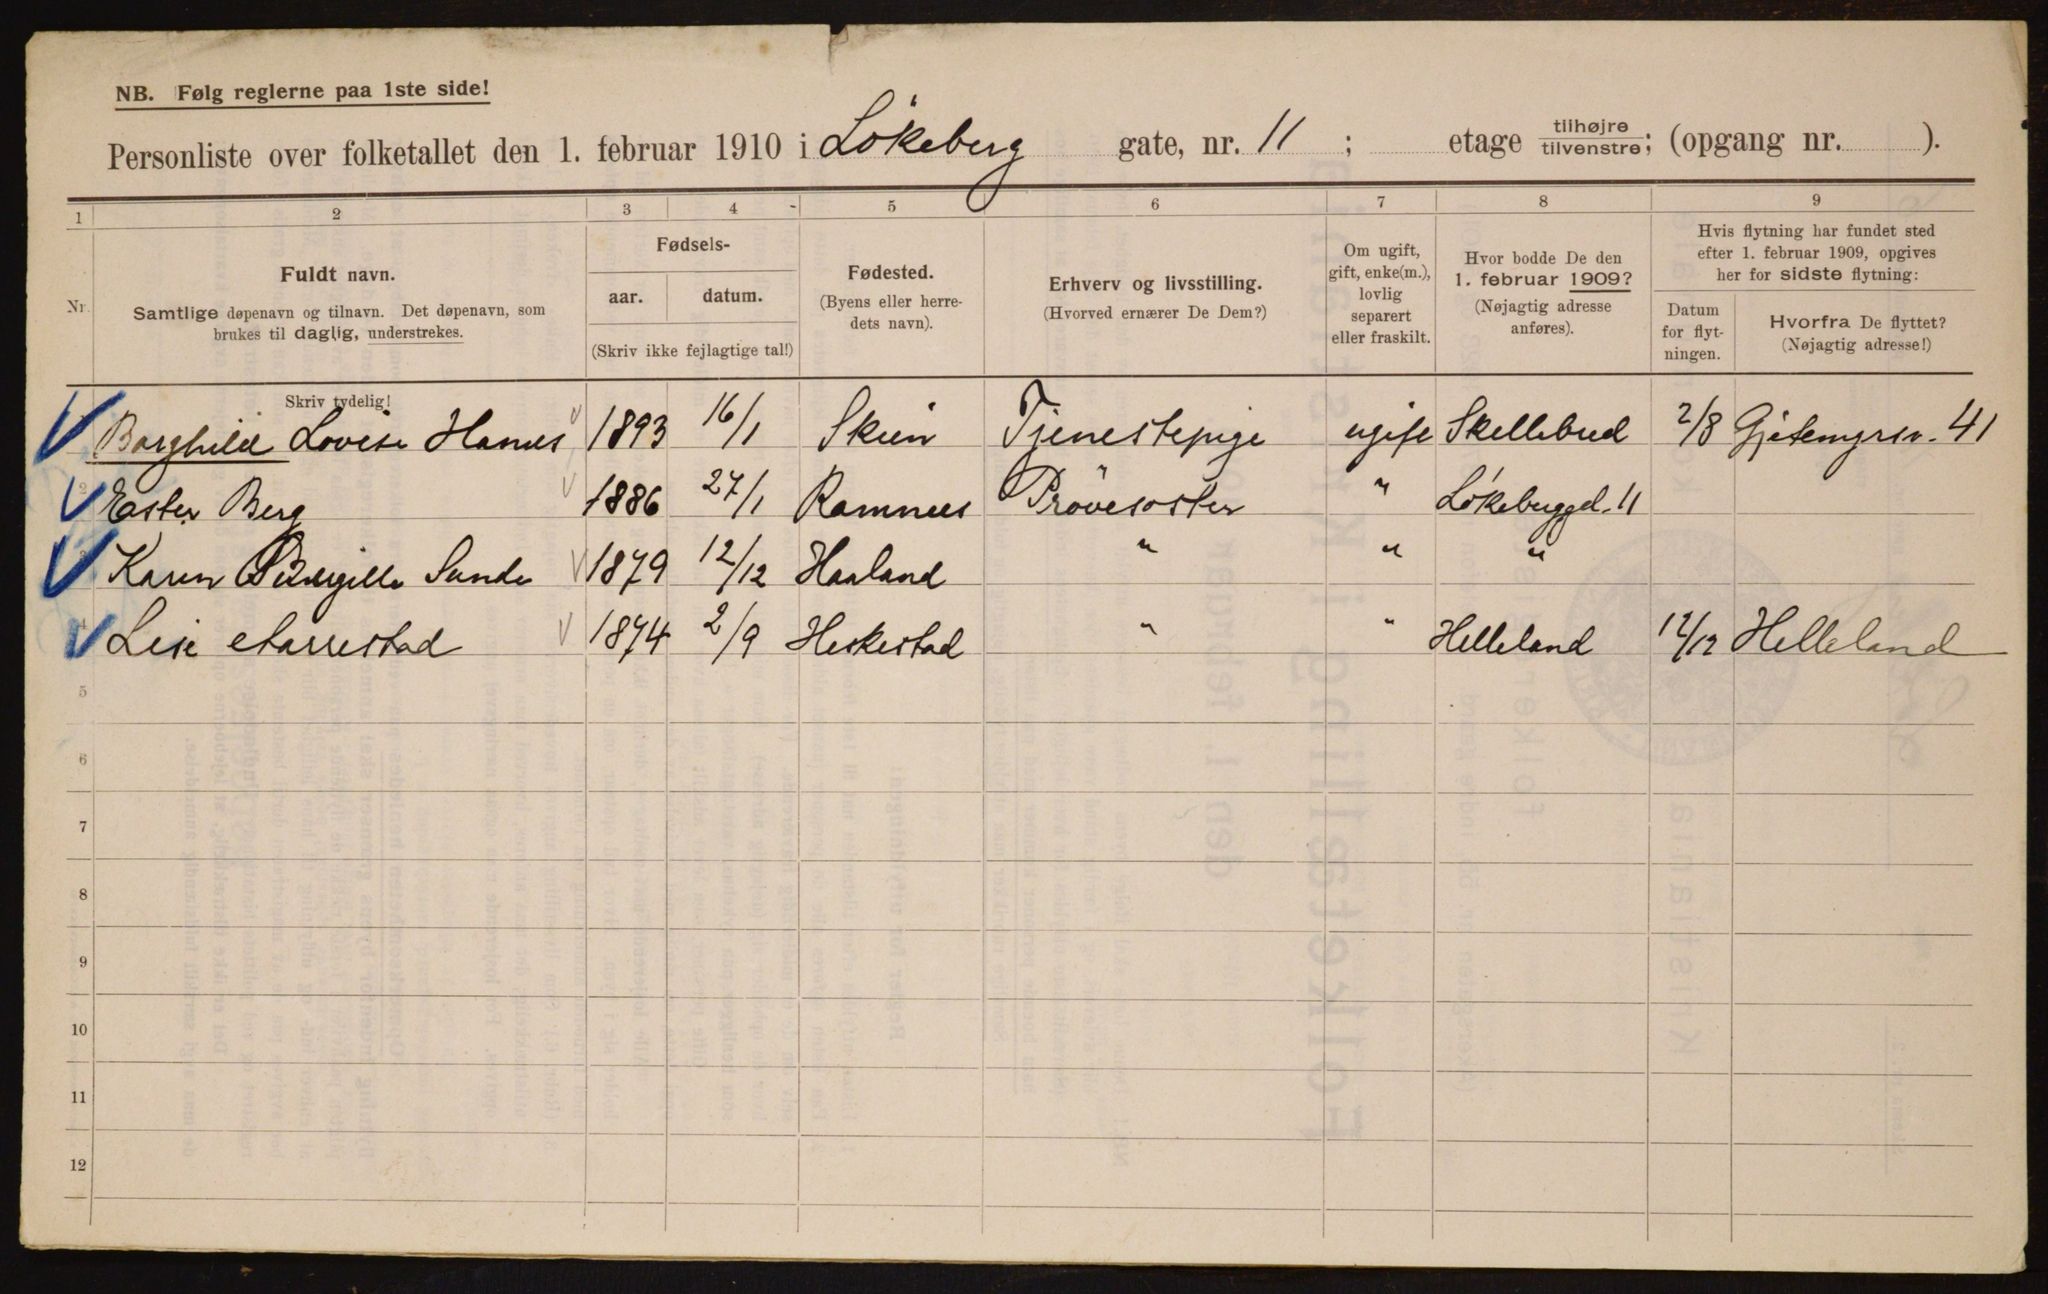 NB. Følg reglerne paa 1ste side!
Personliste over folketallet den 1. februar 1910 i Løkeberg gate, nr. 11 ; etage tilhøjre tilvenstre; (opgang nr. ).
1 2 3 4 5 6 7 8 9
Nr.
Fuldt navn.
Samtlige døpenavn og tilnavn. Det døpenavn, som
brukes til daglig, understrekes.
Skriv tydelig!
Fødsels-
aar. datum.
(Skriv ikke fejlagtige tal!)
Fødested.
(Byens eller herre-
dets navn).
Erhverv og livsstilling.
(Hvorved ernærer De Dem?)
Om ugift,
gift, enke(m.),
lovlig
separert
eller fraskilt.
Hvor bodde De den
1. februar 1909?
(Nøjagtig adresse
anføres).
Hvis flytning har fundet sted
efter 1. februar 1909, opgives
her for sidste flytning:
Datum
for flyt-
ningen.
Hvorfra De flyttet?
(Nøjagtig adresse!)
Borghild Lovise 1893 16/1 Skien Tjenestepige ugift Skellebud 2/8 41
2 Ester Berg 1886 27/1 Ramnees Prøvesøster " 11
3 Karen Sunde 1879 12/12 Haaland " " "
4 Lise 1874 2/9 Heskestad " " Helleland 12/12 Helleland
5
6
7
8
9
10
11
12